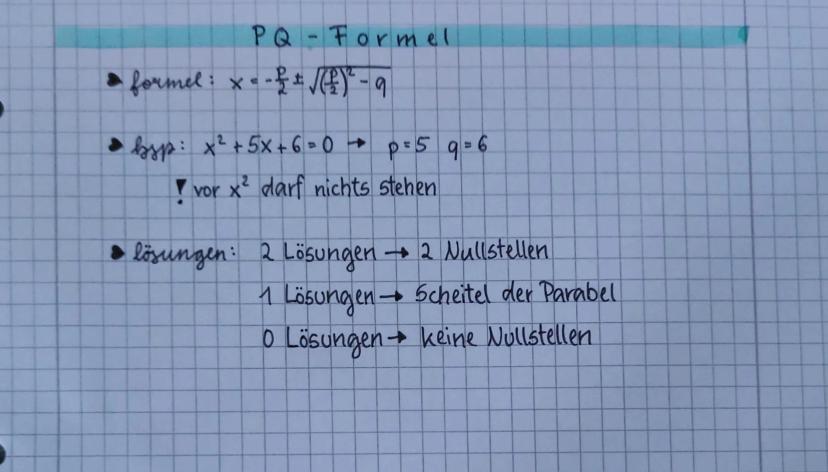 PQ-Formel
formel: x = -p/2 ± √((p/2)² - q)
bsp: x² + 5x + 6 = 0 → p = 5 q = 6
! vor x² darf nichts stehen
lösungen: 2 Lösungen → 2 Nullstellen
1 Lösungen → Scheitel der Parabel
0 Lösungen → keine Nullstellen